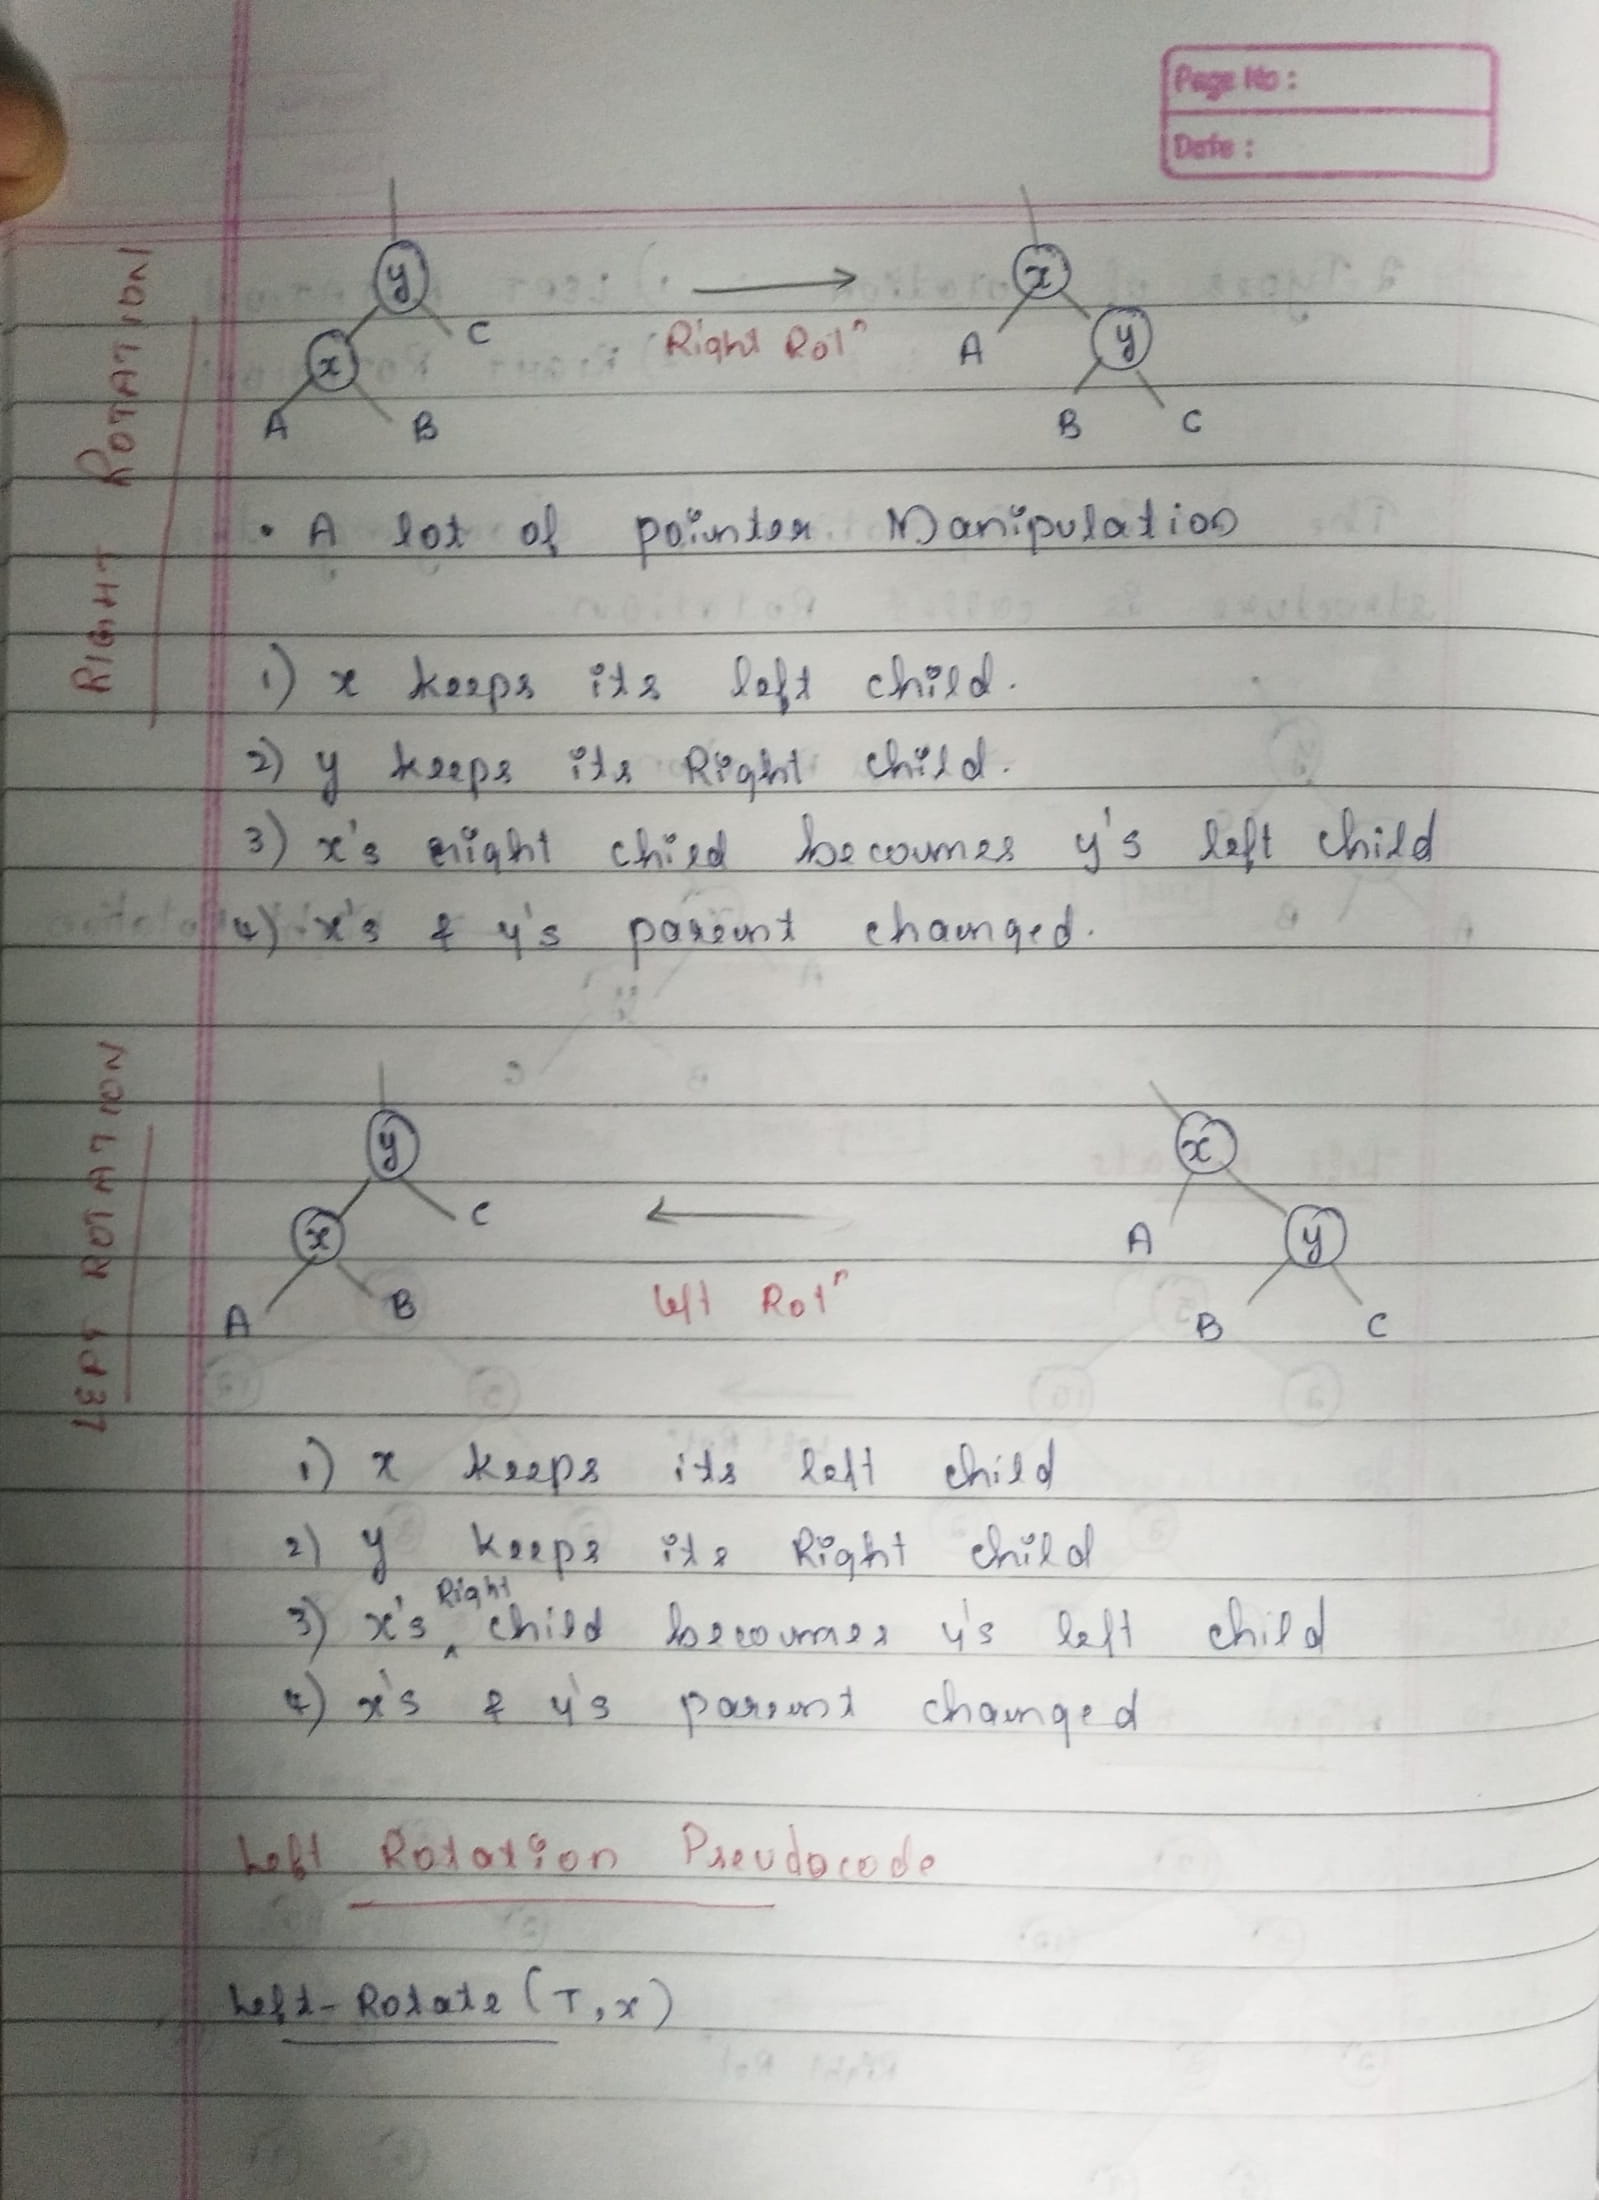 Page No :
Date :
RIGHT ROTATION
y
x
C
A
B
Right Rotⁿ
x
A
y
B
C
• A lot of pointer Manipulation
1) x keeps its left child.
2) y keeps its Right child.
3) x's right child becomes y's left child
4) x's & y's parent changed.
LEFT ROTATION
y
x
C
A
B
left Rotⁿ
x
A
y
B
C
1) x keeps its left child
2) y keeps its Right child
3) x's Right child becomes y's left child
4) x's & y's parent changed
Left Rotation Pseudocode
Left-Rotate (T, x)